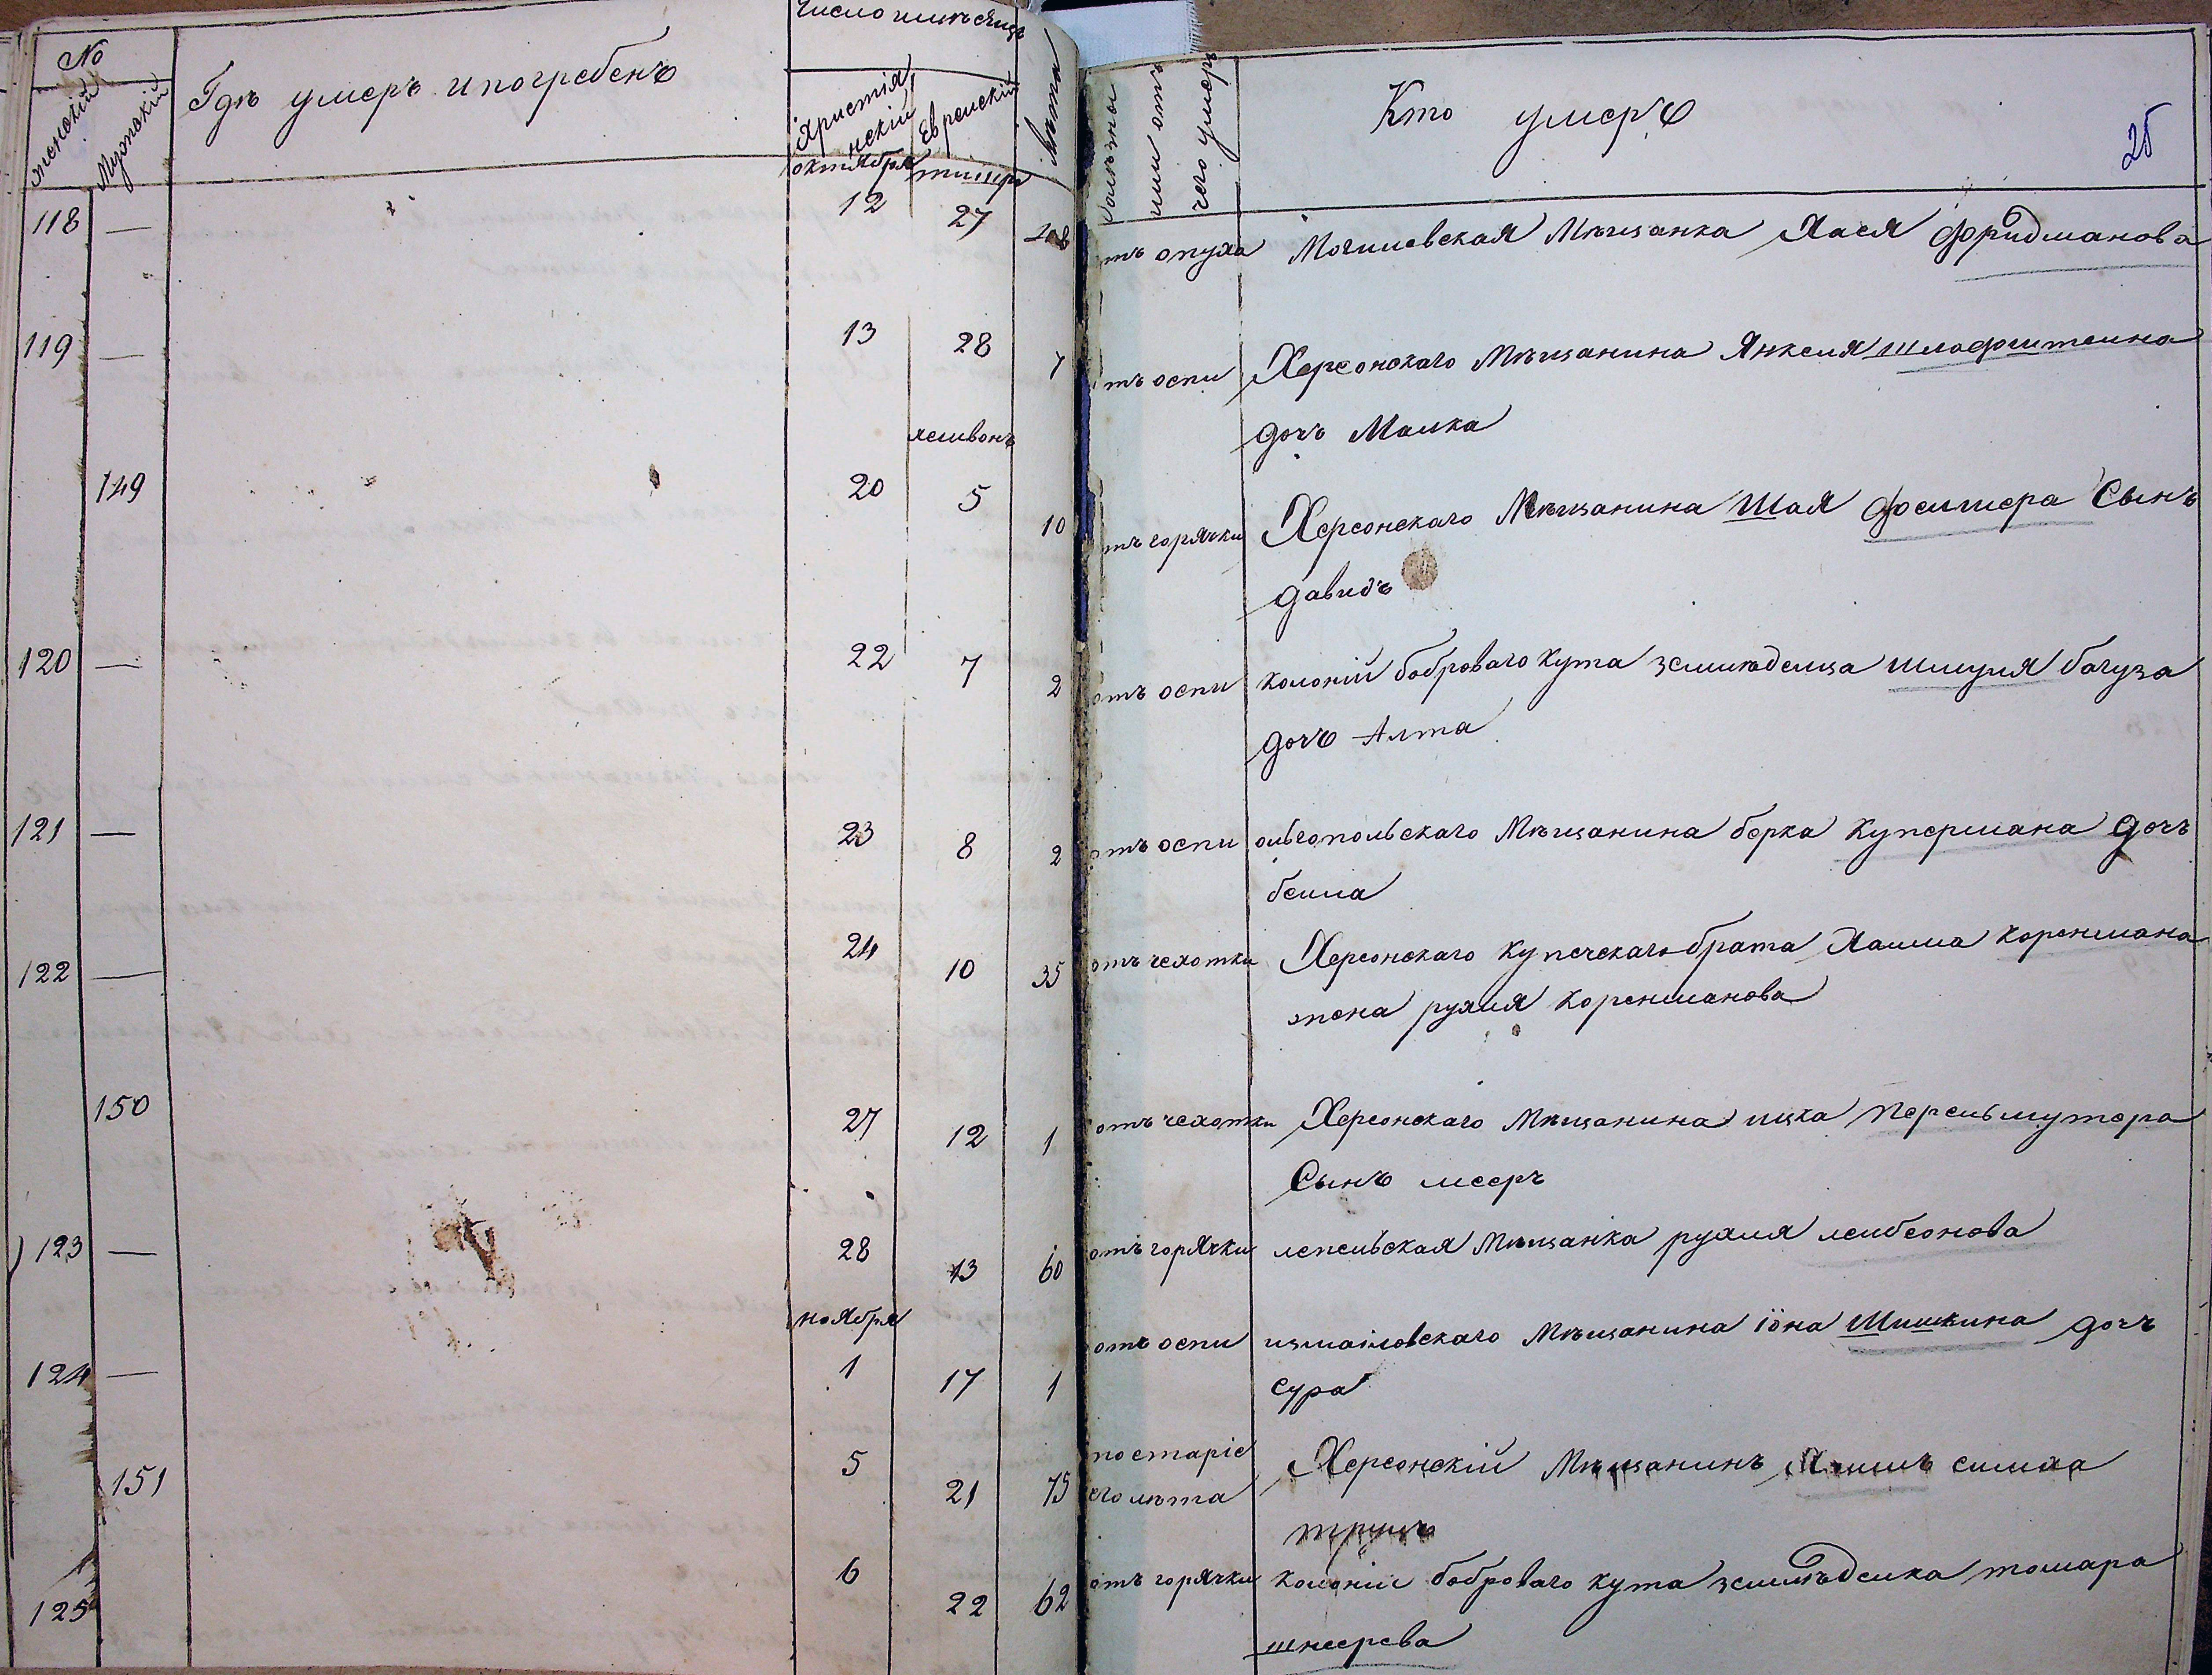 № Гдѣ умеръ и погребенъ Число и мѣсяцъ Лѣта
женскій Мужскій Христіянскій Еврейскій
октября тишри
Болѣзнь или отъ чего умеръ Кто умеръ 25
118 — 12 27 тъ опуха Могилевская Мѣщанка Хася Фридманова
119 — 13 28 7 тъ оспи Херсонскаго Мѣщанина Янкеля Шлафштеина
дочъ Малка
хешвонъ
149 20 5 10 тъ горячки Херсонскаго Мѣщанина Шая Фелшера Сынъ
давидъ
120 — 22 7 2 отъ оспи колоній бобрового кута земледелца шмуля багуза
дочъ Алта
121 — 23 8 2 отъ оспи ольгопольскаго Мѣщанина берка Купермана дочъ
беила
122 — 24 10 35 отъ чехотки Херсонскаго купеческаго брата Хаима коренмана
жена рухля коренманова
150 27 12 1 отъ чехотки Херсонскаго Мѣщанина ицка перельмутера
Сынъ меєръ
123 — 28 13 60 отъ горячки лепельская Мѣщанка рухля леибеонова
ноября
124 — 1 17 1 отъ оспи измаиловскаго Мѣщанина іона Шишкина дочъ
сура
151 5 21 75 по старіе Херсонскій Мѣщанинъ симха
его лѣта
125 6 22 62 отъ горячки колоніи бобрового кута землѣделка томара
шнеерева